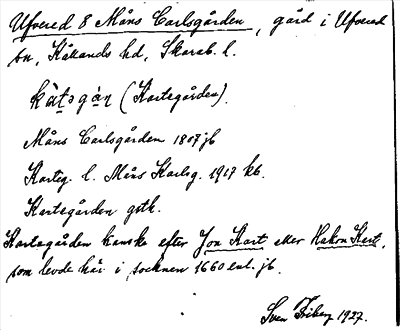 Ufvered 8 Måns Carlsgården, gård i Ufvered
sn, Kåkinds hd, Skarab. l.
kàtsgàṇ (Kartsgården).
Måns Carlsgården 1807 jb
Kartsg. l. Måns Karlsg. 1917 kb.
Kartsgården gstk.
Kartsgården kanske efter Jon Kart eller Håkon Kart,
som levde här i socknen 1660 enl. jb.
Sven Friberg 1927.